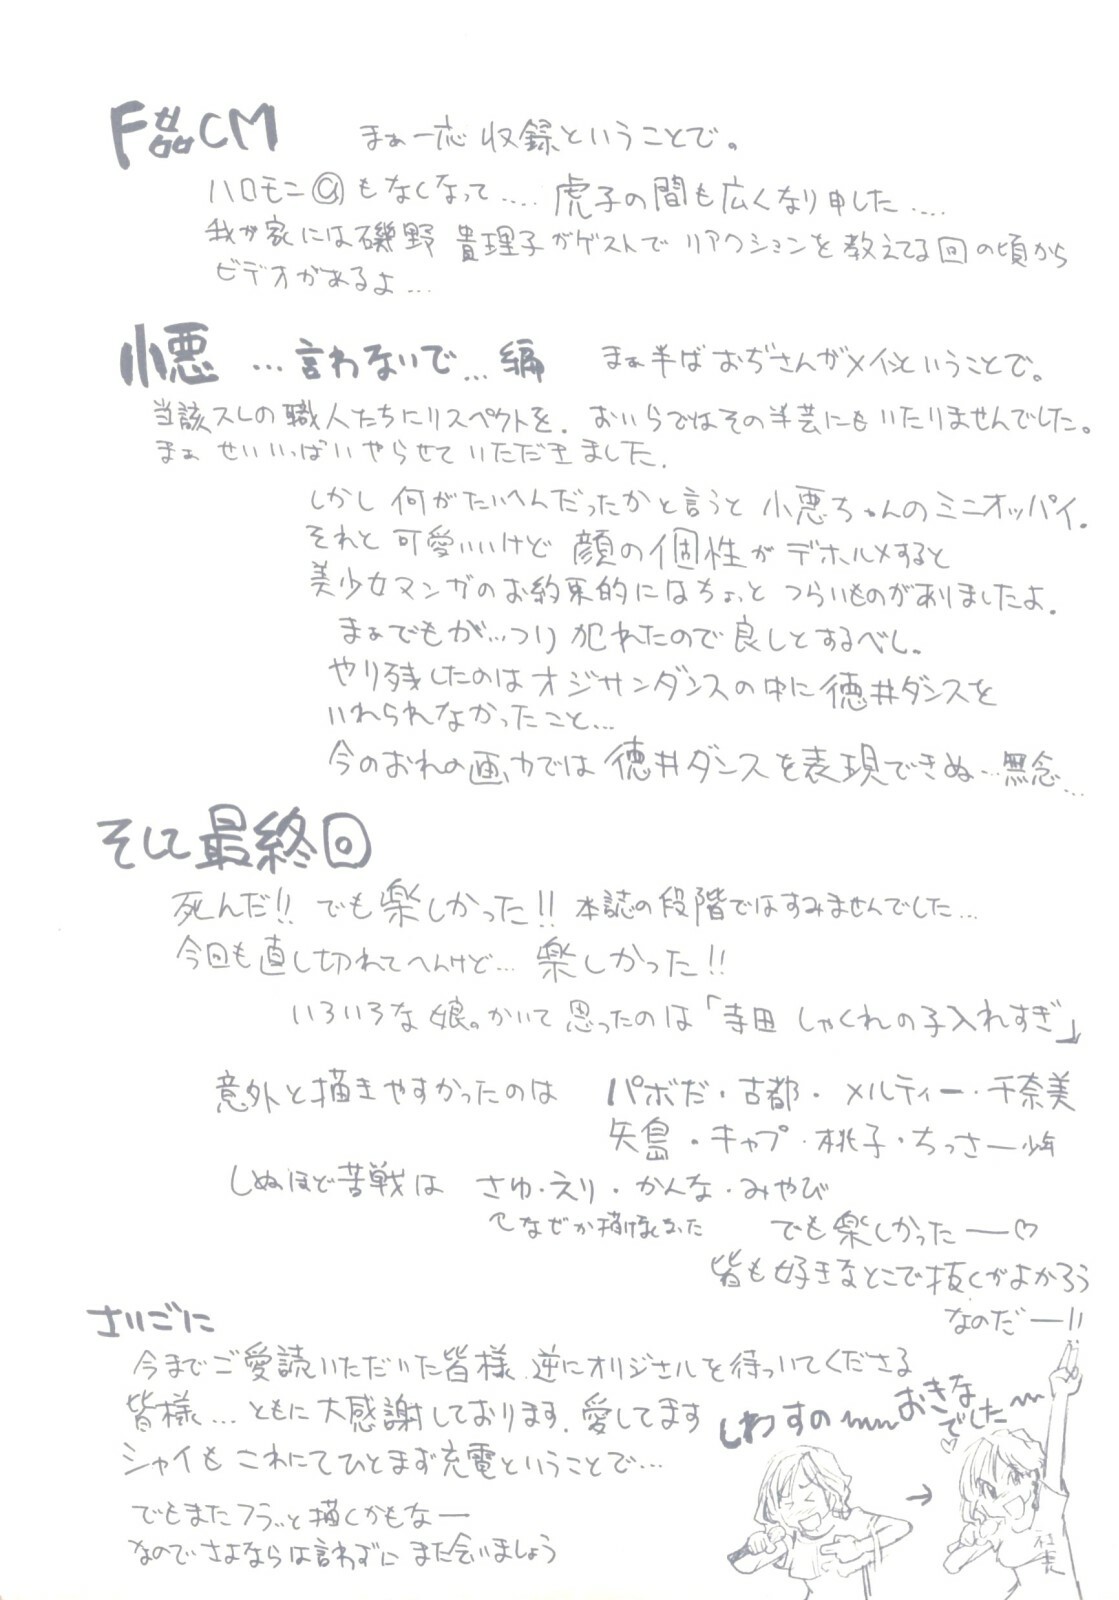 F磊CM まぁ一応 収録ということで。
ハロモニ@もなくなって.... 虎子の間も広くなり申した....
我が家には磯野 貴理子がゲストで リアクションを教えてる回の頃から
ビデオがあるよ...
小悪 ...言わないで...編 まぁ半ばおぢさんがメインということで。
当該スレの職人たちにリスペクトを. おいらではその半芸にもいたりませんでした。
まぁ せいいっぱいやらせていただきました.
しかし 何がたいへんだったかと言うと 小悪ちゃんのミニオッパイ.
それと 可愛いいけど 顔の個性がデホルメすると
美少女マンガのお約束的にはちょっと つらいものがありましたよ.
まぁでもが...つり 犯れたので良しとするべし。
やり残したのはオジサンダンスの中に徳井ダンスを
いれられなかったこと...
今のおれの画力では 徳井ダンスを表現できぬ...無念...
そして最終回
死んだ!! でも楽しかった!! 本誌の段階ではすみませんでした...
今回も直し切れてへんけど... 楽しかった!!
いろいろな娘。かいて思ったのは「寺田 しゃくれの子入れすぎ」
意外と描きやすかったのは パボだ・古都・メルティー・千奈美
矢島・キャプ・桃子・ちっさー少年
しぬほど苦戦は さゆ・えり・かんな・みやび
でも楽しかったー♡
皆も好きなとこで抜くがよかろう
なのだー!!
さいごに
今までご愛読いただいた皆様 逆にオリジナルを待っていてくださる
皆様... ともに大感謝しております. 愛してます
シャイも これにてひとまず充電ということで...
でもまたフラッと描くかもなー
なのでさよならは言わずに また会いましょう
しわすの〰〰おきな
でした〰
♡
→